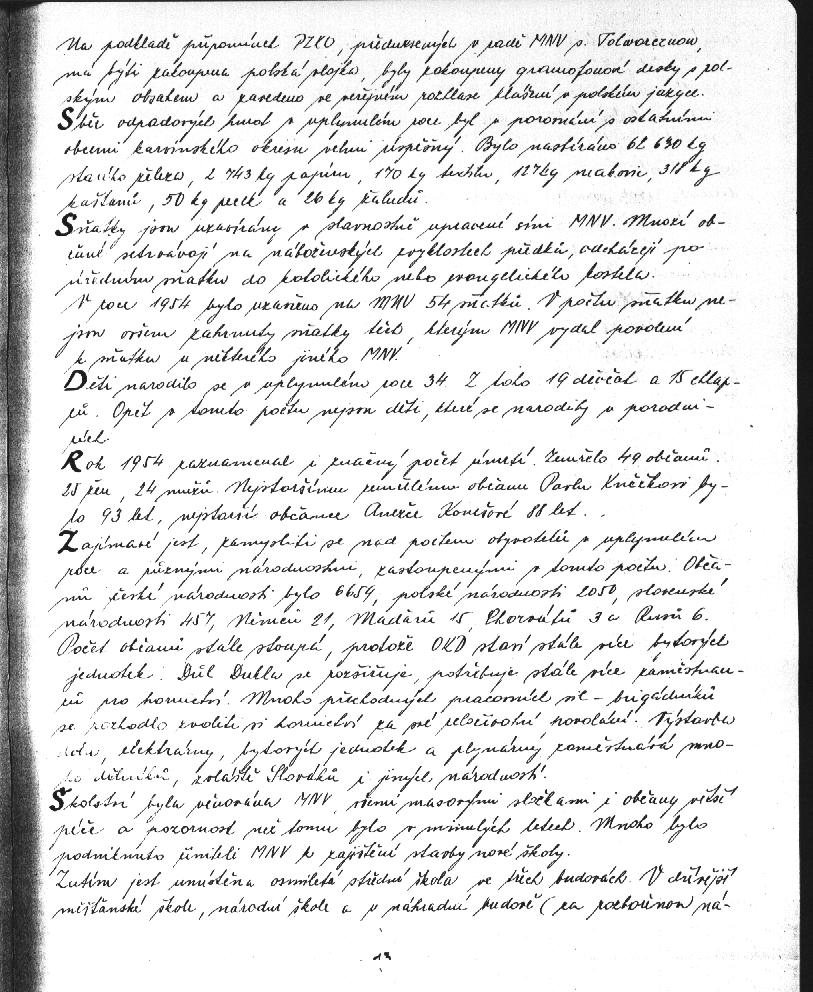 Na podkladě připomínek PZKO, přednesených v radě MNV s. Tolwarcznow,
má býti zakoupena polská vlajka, byly zakoupeny gramofonové desky s pol-
ským obsahem a zavedeno ve veřejném rozhlase hlášení v polském jazyce.
Sběr odpadových hmot v uplynulém roce byl v porovnání s ostatními
obcemi karvinského okresu velmi úspěšný. Bylo nasbíráno 62 630 kg
starého železa, 2 743 kg papíru, 170 kg textilu, 127 kg makovic, 318 kg
kaštanů, 50 kg pecek a 26 kg žaludů.
Sňatky jsou uzavírány v slavnostně upravené síni MNV. Mnozí ob-
čané setrvávají na náboženských zvyklostech předků, odcházejí po
úředním sňatku do katolického nebo evangelického kostela.
V roce 1954 bylo uzavřeno na MNV 54 sňatků. V počtu sňatku ne-
jsou ovšem zahrnuty sňatky těch, kterým MNV vydal povolení
k sňatku u některého jiného MNV.
Dětí narodilo se v uplynulém roce 34. Z toho 19 děvčat a 15 chlap-
ců. Opět v tomto počtu nejsou děti, které se narodily v porodni-
cích.
Rok 1954 zaznamenal i značný počet úmrtí. Zemřelo 49 občanů.
25 žen, 24 mužů. Nejstaršímu zemřelému občanu Pavlu Kněčkovi by-
lo 93 let, nejstarší občance Anežce Konešové 88 let.
Zajímavé jest, zamysliti se nad počtem obyvatelů v uplynulém
roce a různými národnostmi, zastoupenými v tomto počtu. Obča-
nů české národnosti bylo 6659, polské národnosti 2050, slovenské
národnosti 457, Němců 21, Maďarů 15, Chorvátů 3 a Rusů 6.
Počet občanů stále stoupá, protože OKD staví stále více bytových
jednotek. Důl Dukla se rozšiřuje, potřebuje stále více zaměstnan-
ců pro hornictví. Mnoho přechodných pracovních sil - brigádníků
se rozhodlo zvoliti si hornictví za své celoživotní povolání. Výstavba
dolu, elektrárny, bytových jednotek a plynárny zaměstnává mno-
ho dělníků, zvláště Slováků i jiných národností.
Školství byla věnována MNV, všemi masovými složkami i občany větší
péče a pozornost než tomu bylo v minulých letech. Mnoho bylo
podniknuto činiteli MNV k zajištění stavby nové školy.
Zatím jest umístěna osmiletá střední škola ve třech budovách. V dřívější
měšťanské škole, národní škole a v náhradní budově (za rozbořenou ná-
13